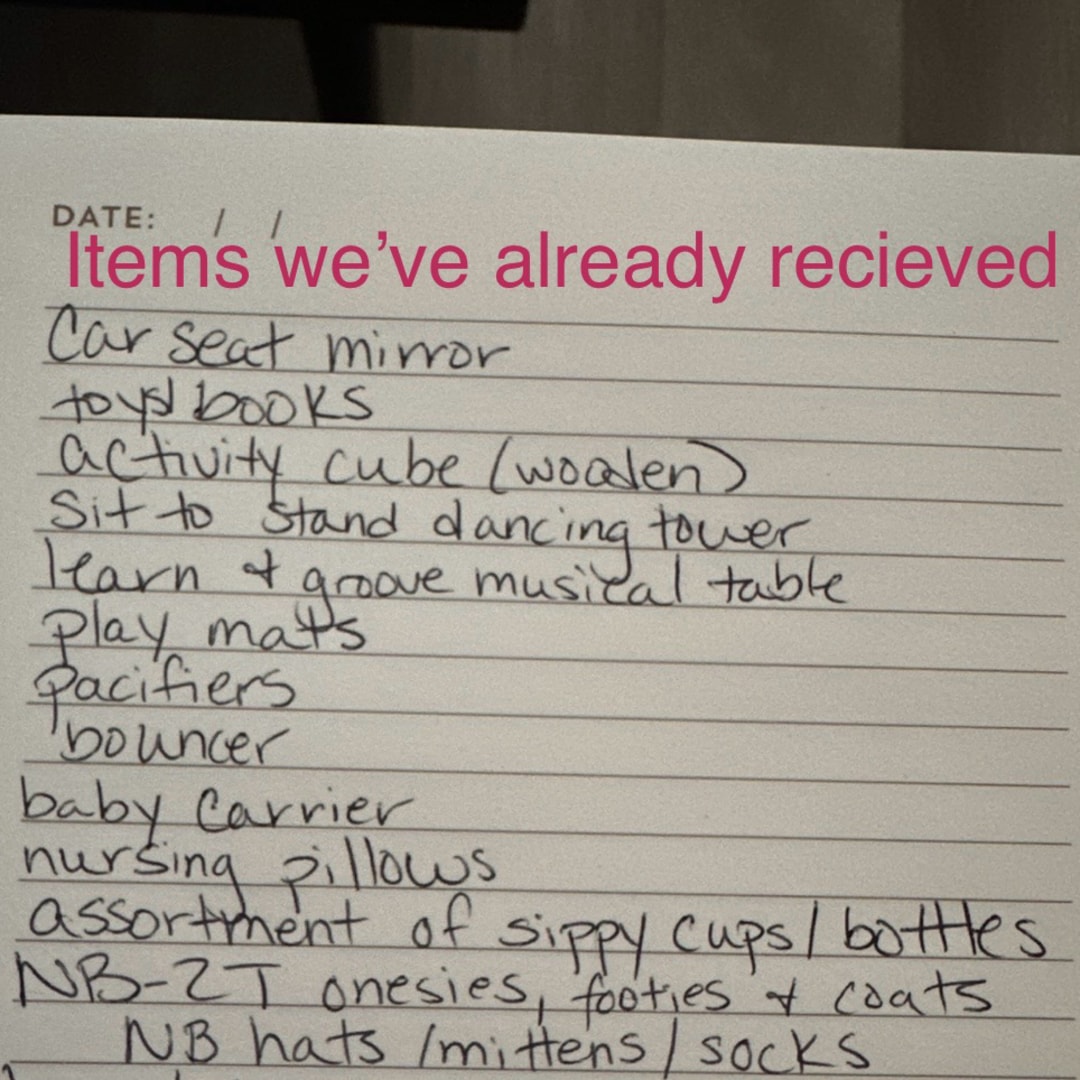 DATE: / /
Items we've already recieved
Car seat mirror
toys/books
activity cube (wooden)
Sit to stand dancing tower
learn & groove musical table
play mats
pacifiers
bouncer
baby carrier
nursing pillows
assortment of sippy cups/bottles
NB-2T onesies, footies & coats
NB hats/mittens/socks